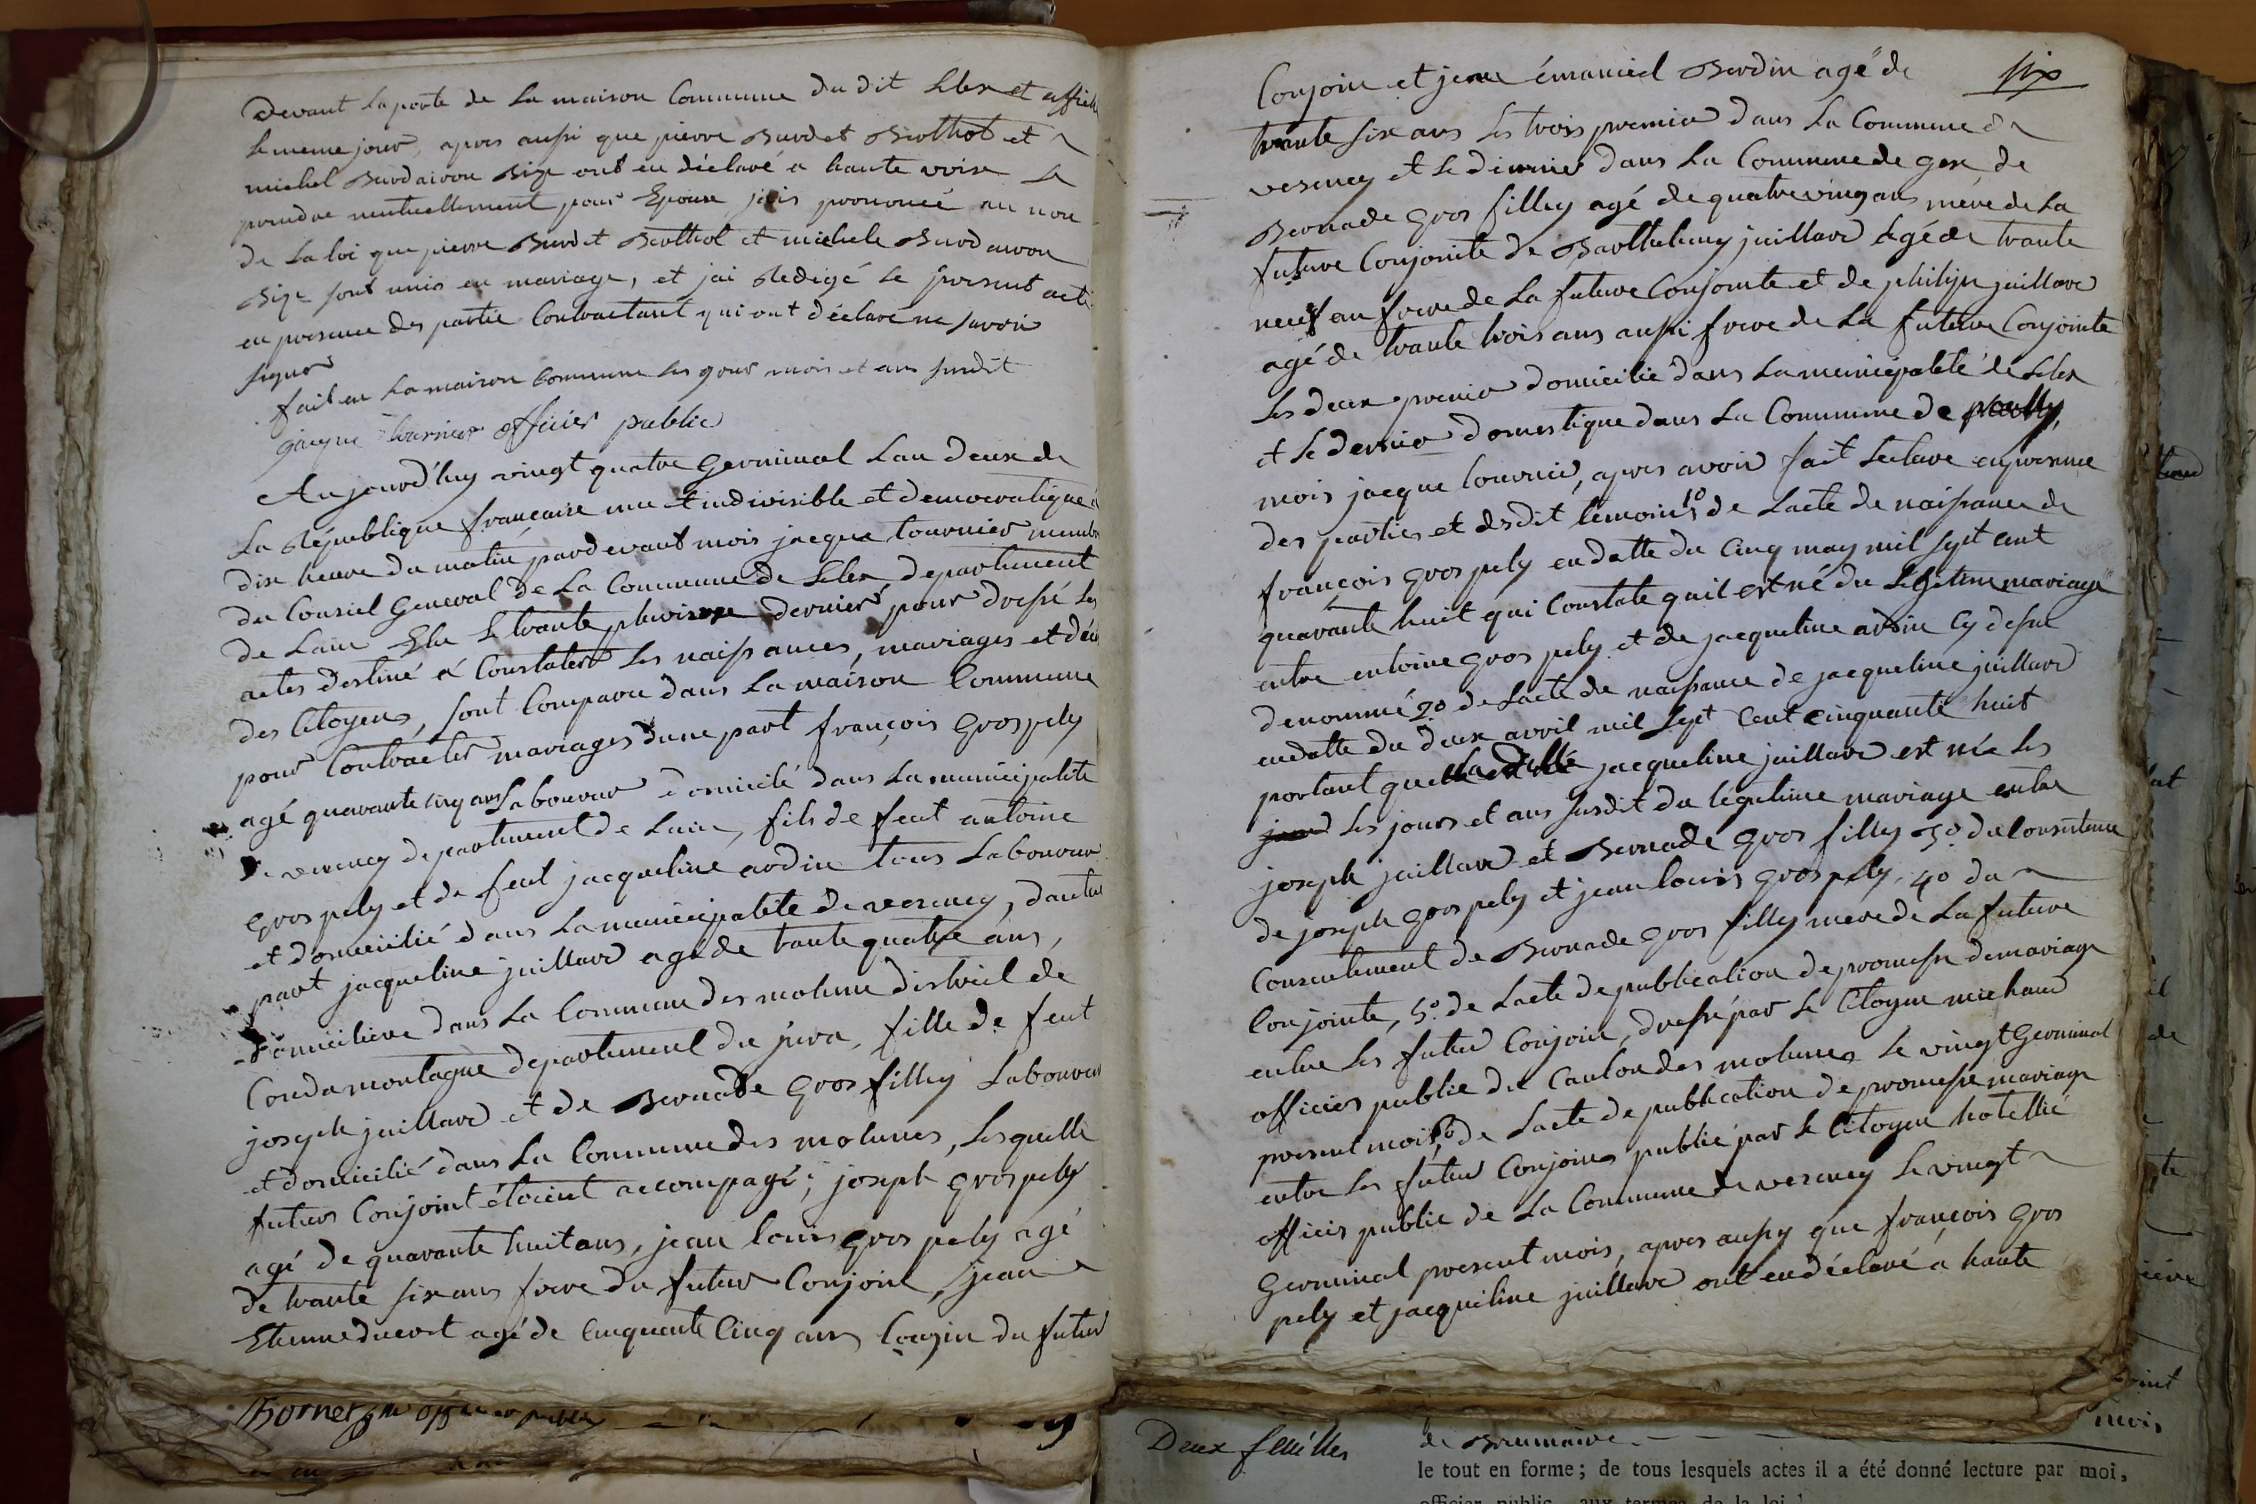 Devant la porte de la maison Commune du dit Lelex et affiché
le meme jour, apres aussi que pierre Burdet Brolhot et
michel Burdairon Bize ont eu déclaré a haute voix se
prendre mutuellement pour Epoux jais prononcé au non
de La loi que pierre Burdet Brolhol et michele Burdairon
Bize sont unis en mariage, et jai Redigé le present acte
en presence des partie Contractant qui ont déclaré ne savoir
signer
fait en La maison Commune les jour mois et ans susdit
jacque tournier officier public
Aujourd'huy vingt quatre Germinal Lan deux de
La République française une et indivisible et democratique a
dix heure du matin pardevant mois jacque tournier membre
du Conseil General de La Commune de Lelex, departement
de Lain Elu le trante pluviose dernier pour dressé les
actes destiné a Constater les naissances, mariages et décé
des Citoyens, sont Comparu dans La maison Commune
pour Contracter mariages dune part françois Grospely
agé quarante cinq ans Labourour domicilé dans La municipalité
de vesency departement de Lain, fils de feut antoine
Grospely et de feut jacqueline ardin tous Labourour
et domicilié dans La municipalité de vesency, dautre
part jacqueline juillard agé de trante quatre ans,
domiciliere dans La Commune des molune district de
Condamontagne departement du jura, fille de feut
joseph juillard et de Bernade Gros filley Labourour
et domicilié dans La Commune des molunes, Lesquelle
futurs Conjoint étoient accompagé; joseph Grospely
agé de quarante huit ans, jean louis Gros pely agé
de trante six ans frere du futur Conjoint, jean
Etienne ducret agé de Cinquante Cinq ans Couzin du futur
officier public
six
Conjoin et jean émanuel Burdin agé de
trante six ans Les trois premier dans La Commune de
vesency et le dernier dans La Commune de gex de
Bernade Gros filley agé de quatre ving ans mere de La
future Conjointe de Barthelemy juillard agé de trante
neuf an frere de La future Conjointe et de philipe juillard
agé de trante trois ans aussi frere de La future Conjointe
les deux premier domicilié dans La municipalité de Lelex
et le dernier domestique dans La Commune de
mois jacque tournier, apres avoir fait Lecture en presence
des parties et desdit temoins 1º de Lacte de naissance de
françois Gros pely en datte du Cinq may mil sept cent
quarante huit qui Constate quil est né du Legitime mariage
entre entoine Gros pely et de jacqueline ardin Cy desue
denommé 2º de Lacte de naissance de jacqueline juillard
en datte du deux avril mil sept Cent Cinquante huit
portant que ladille jacqueline juillard est née les
les jours et ans susdit du légitime mariage entre
joseph juillard et Bernade Gros filley 3º du Consentence
de joseph Gros pely et jean louis Gros pely 4º du
Consentement de Bernade Gros filley mere de La future
Conjointe, 5º de Lacte de publication de promesse de mariage
entre les futur Conjoin, dressé par le Citoyen michaud
officier public du Canton des molunes le vingt Germinal
present mois, 6º de Lacte de publication de promesse mariage
entre les futur Conjoins publié par le Citoyen hotellié
officier public de La Commune de vesency le vingt
Germinal present mois, apres aussy que françois Gros
pely et jacqueline juillard ont eu déclaré a haute
Deux feuilles
mois
de Brumaire
le tout en forme; de tous lesquels actes il a été donné lecture par moi,
officier public, aux termes de la loi